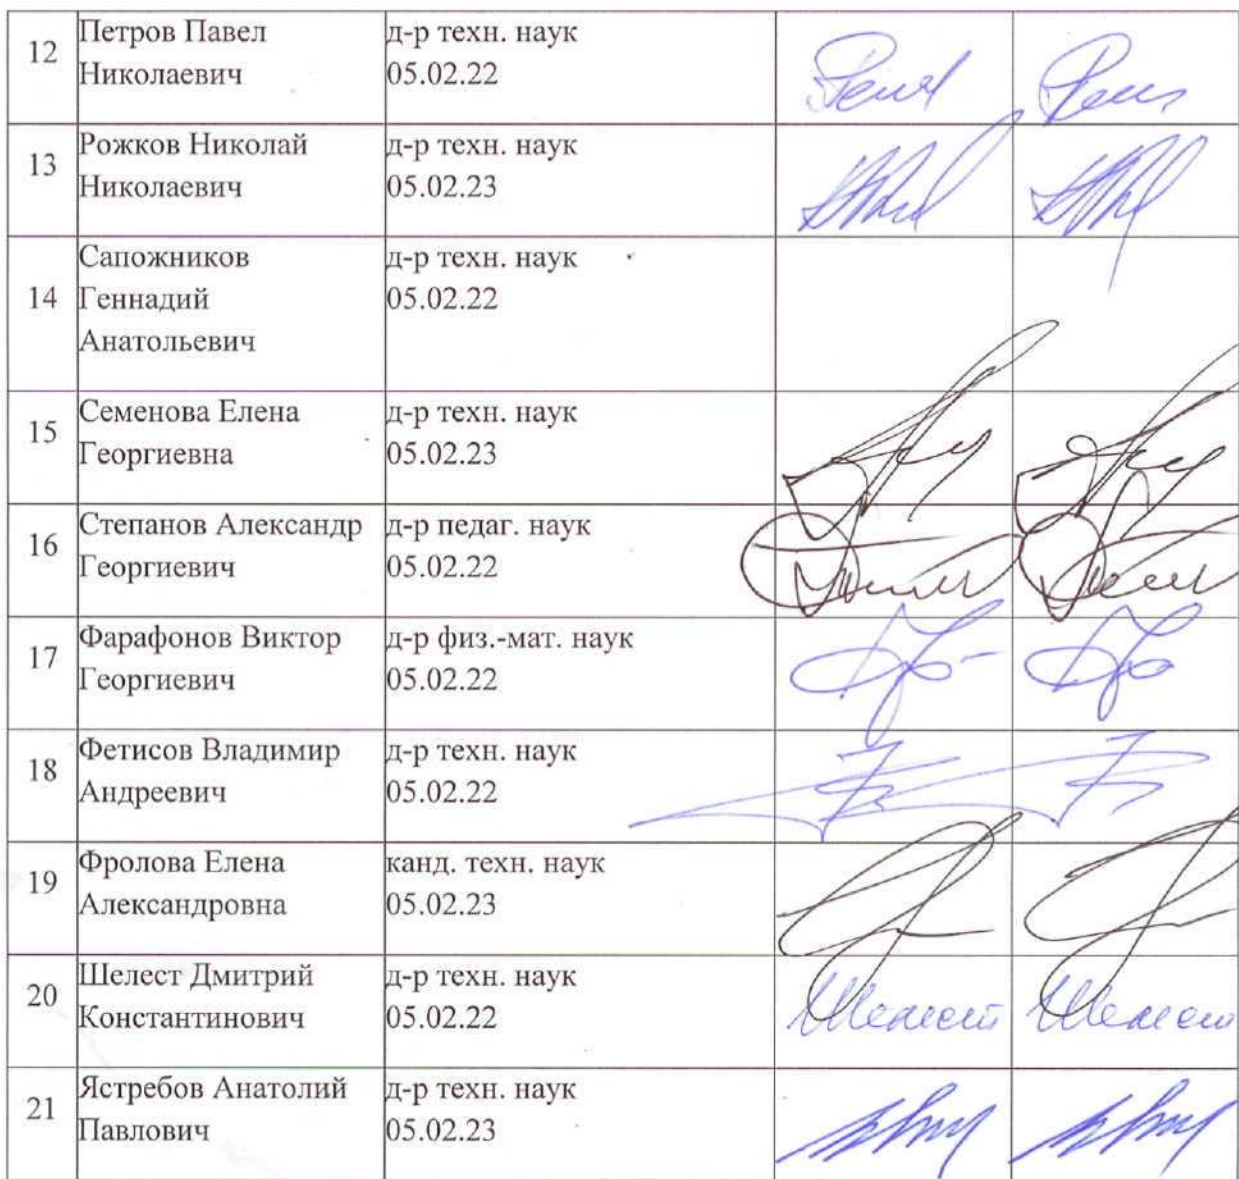 12
Петров Павел
Николаевич
д-р техн. наук
05.02.22
13
Рожков Николай
Николаевич
д-р техн. наук
05.02.23
14
Сапожников
Геннадий
Анатольевич
д-р техн. наук
05.02.22
15
Семенова Елена
Георгиевна
д-р техн. наук
05.02.23
16
Степанов Александр
Георгиевич
д-р педаг. наук
05.02.22
17
Фарафонов Виктор
Георгиевич
д-р физ.-мат. наук
05.02.22
18
Фетисов Владимир
Андреевич
д-р техн. наук
05.02.22
19
Фролова Елена
Александровна
канд. техн. наук
05.02.23
20
Шелест Дмитрий
Константинович
д-р техн. наук
05.02.22
Шелест
Шелест
21
Ястребов Анатолий
Павлович
д-р техн. наук
05.02.23